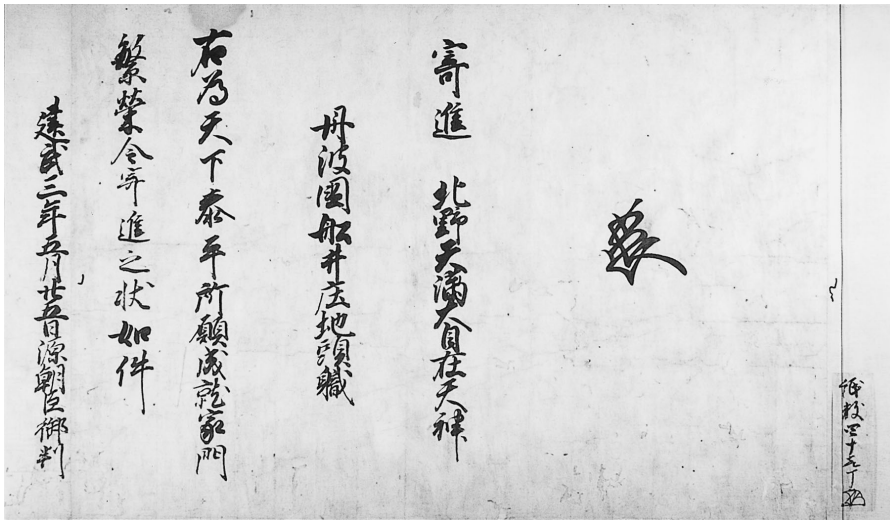 紙枚四十九丁
寄進　北野天満大自在天神
丹波國船井庄地頭職
右為天下泰平所願成就家門
繁榮令寄進之状如件
建武三年五月廿五日源朝臣御判